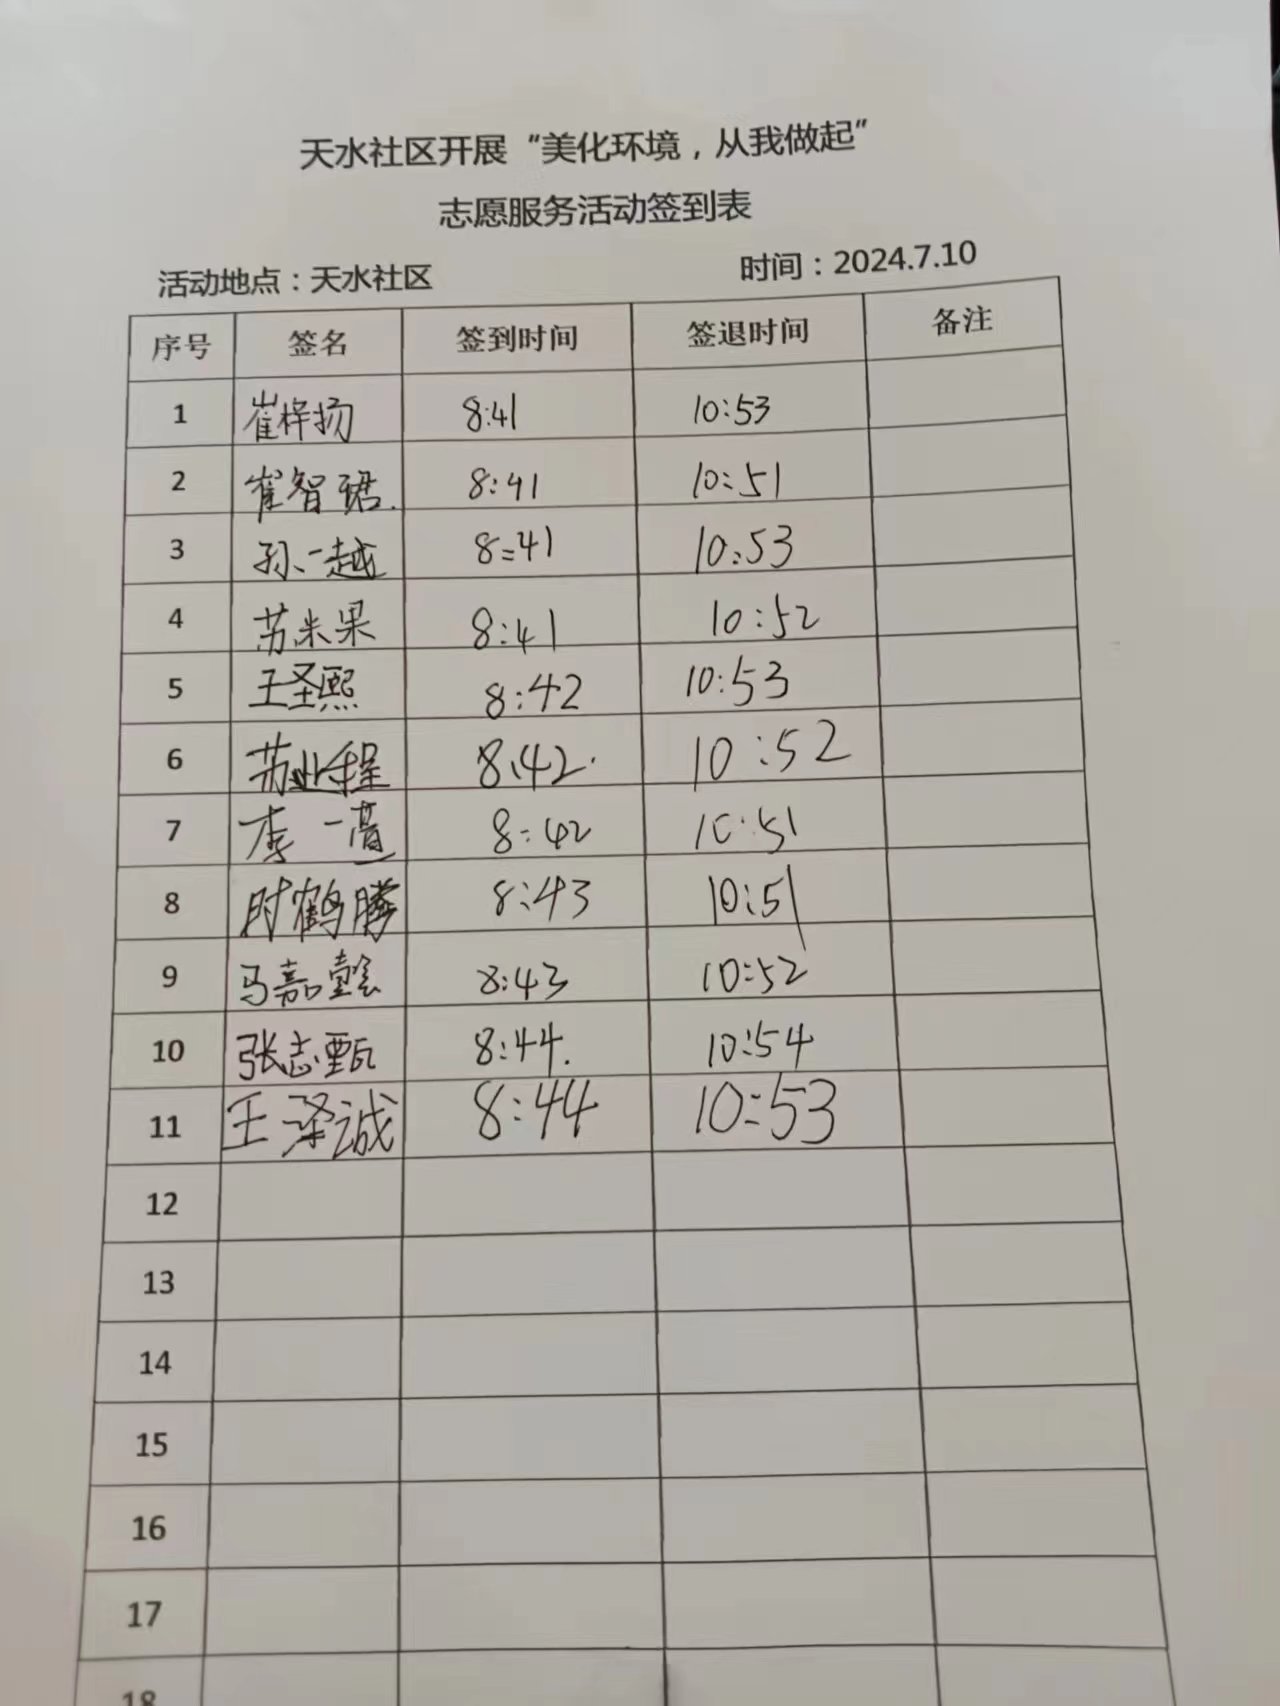 天水社区开展“美化环境，从我做起”
志愿服务活动签到表
活动地点：天水社区 时间：2024.7.10
序号 签名 签到时间 签退时间 备注
1 崔梓扬 8:41 10:53
2 崔智珺. 8:41 10:51
3 孙一越 8:41 10:53
4 苏米果 8:41 10:52
5 王圣熙 8:42 10:53
6 苏业程 8:42. 10:52
7 李一 8:42 10:51
8 时鹤腾 8:43 10:51
9 马嘉 8:43 10:52
10 张志甄 8:44. 10:54
11 王泽诚 8:44 10:53
12
13
14
15
16
17
18